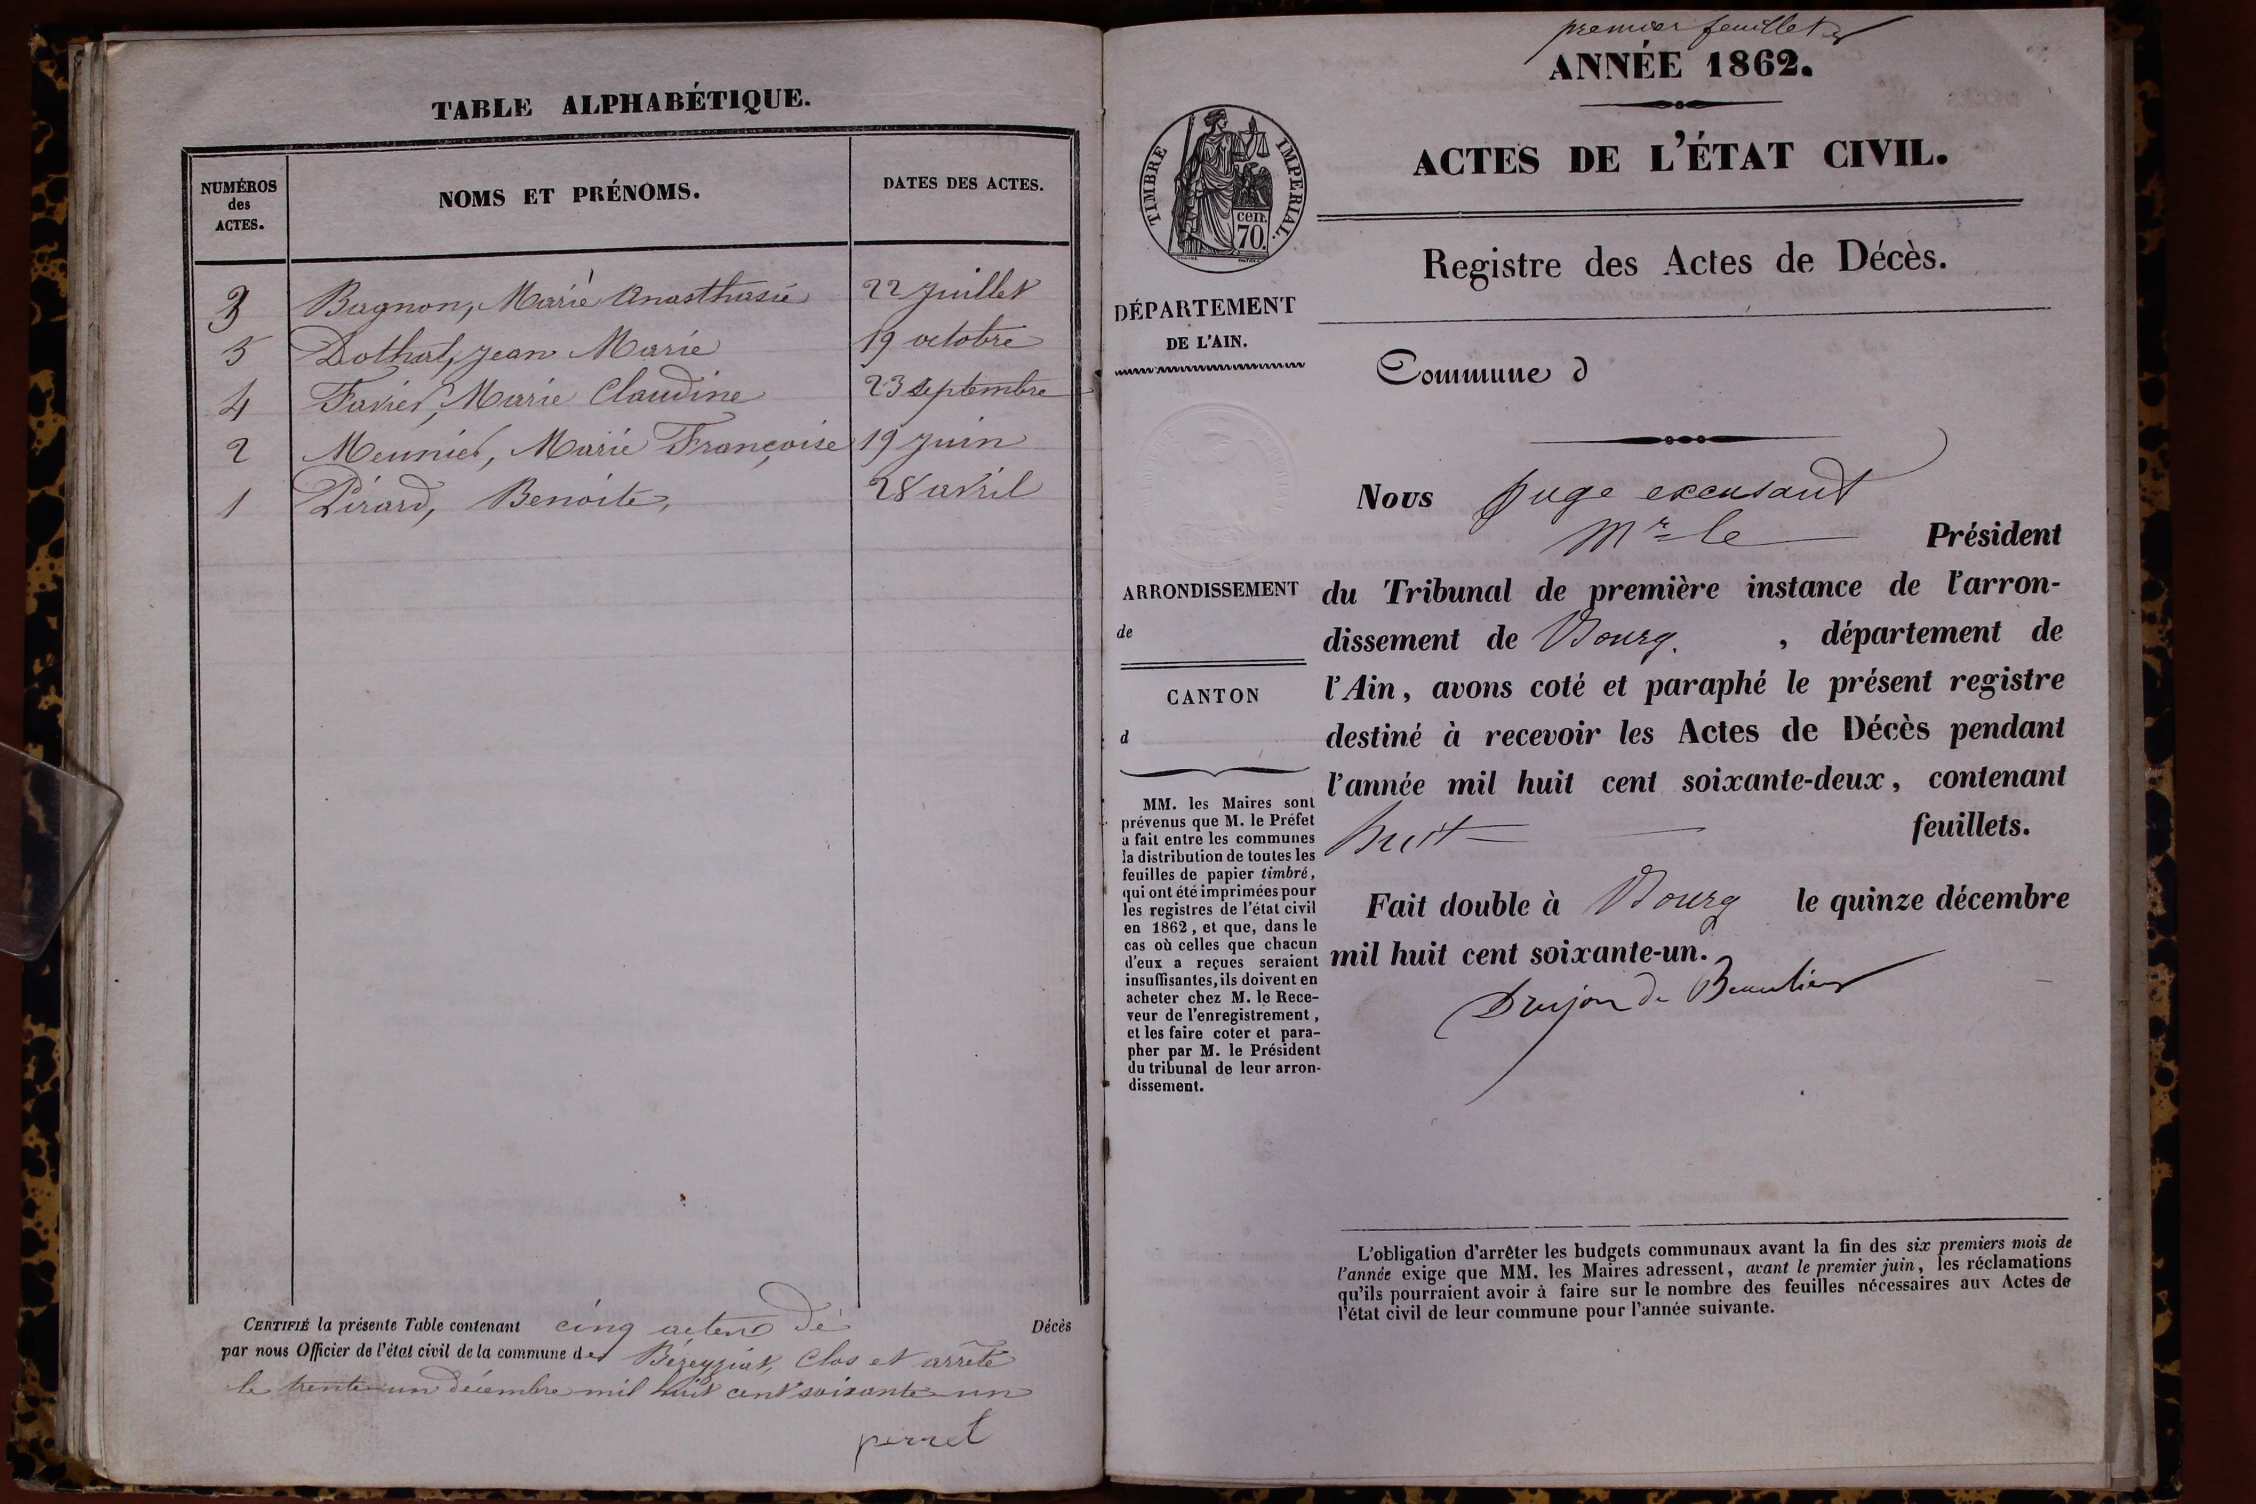 TABLE ALPHABÉTIQUE.
NUMÉROS
des
ACTES.
NOMS ET PRÉNOMS.
DATES DES ACTES.
3 Bagnon, Marie Anasthasie 22 juillet
5 Dothal, jean Marie 19 octobre
4 Favier, Marie Claudine 23 septembre
2 Meunier, Marie Françoise 19 juin
1 Pirard, Benoite, 28 avril
CERTIFIÉ la présente Table contenant cinq actes de Décès
par nous Officier de l'état civil de la commune de Béreyziat, Clos et arrêté
le trente-un décembre mil huit cent soixante-un
perret
premier feuillet
ANNÉE 1862.
ACTES DE L'ÉTAT CIVIL.
TIMBRE IMPERIAL.
cen.
70.
Registre des Actes de Décès.
DÉPARTEMENT
DE L'AIN.
Commune d
Nous juge excusant
Mr le Président
ARRONDISSEMENT
de
CANTON
d
du Tribunal de première instance de l'arron-
dissement de Bourg. , département de
l'Ain, avons coté et paraphé le présent registre
destiné à recevoir les Actes de Décès pendant
l'année mil huit cent soixante-deux, contenant
huit feuillets.
Fait double à Bourg le quinze décembre
mil huit cent soixante-un.
Drujon de Beaulieu
MM. les Maires sont
prévenus que M. le Préfet
a fait entre les communes
la distribution de toutes les
feuilles de papier timbré,
qui ont été imprimées pour
les registres de l'état civil
en 1862, et que, dans le
cas où celles que chacun
d'eux a reçues seraient
insuffisantes, ils doivent en
acheter chez M. le Rece-
veur de l'enregistrement,
et les faire coter et para-
pher par M. le Président
du tribunal de leur arron-
dissement.
L'obligation d'arrêter les budgets communaux avant la fin des six premiers mois de
l'année exige que MM. les Maires adressent, avant le premier juin, les réclamations
qu'ils pourraient avoir à faire sur le nombre des feuilles nécessaires aux Actes de
l'état civil de leur commune pour l'année suivante.